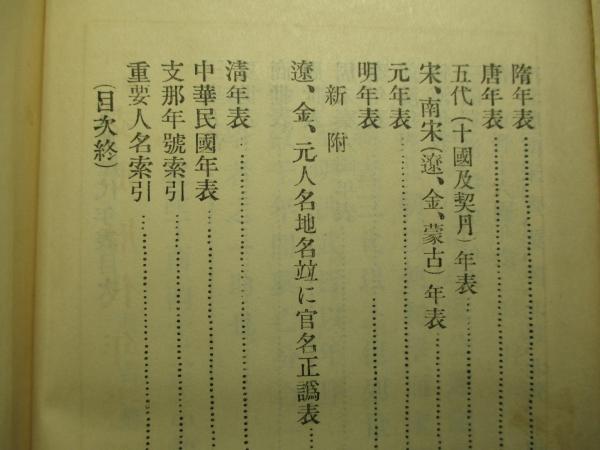 隋年表
唐年表
五代(十國及契丹)年表
宋、南宋(遼、金、蒙古)年表
元年表
明年表
新附
遼、金、元人名地名竝に官名正譌表
淸年表
中華民國年表
支那年號索引
重要人名索引
(目次終)